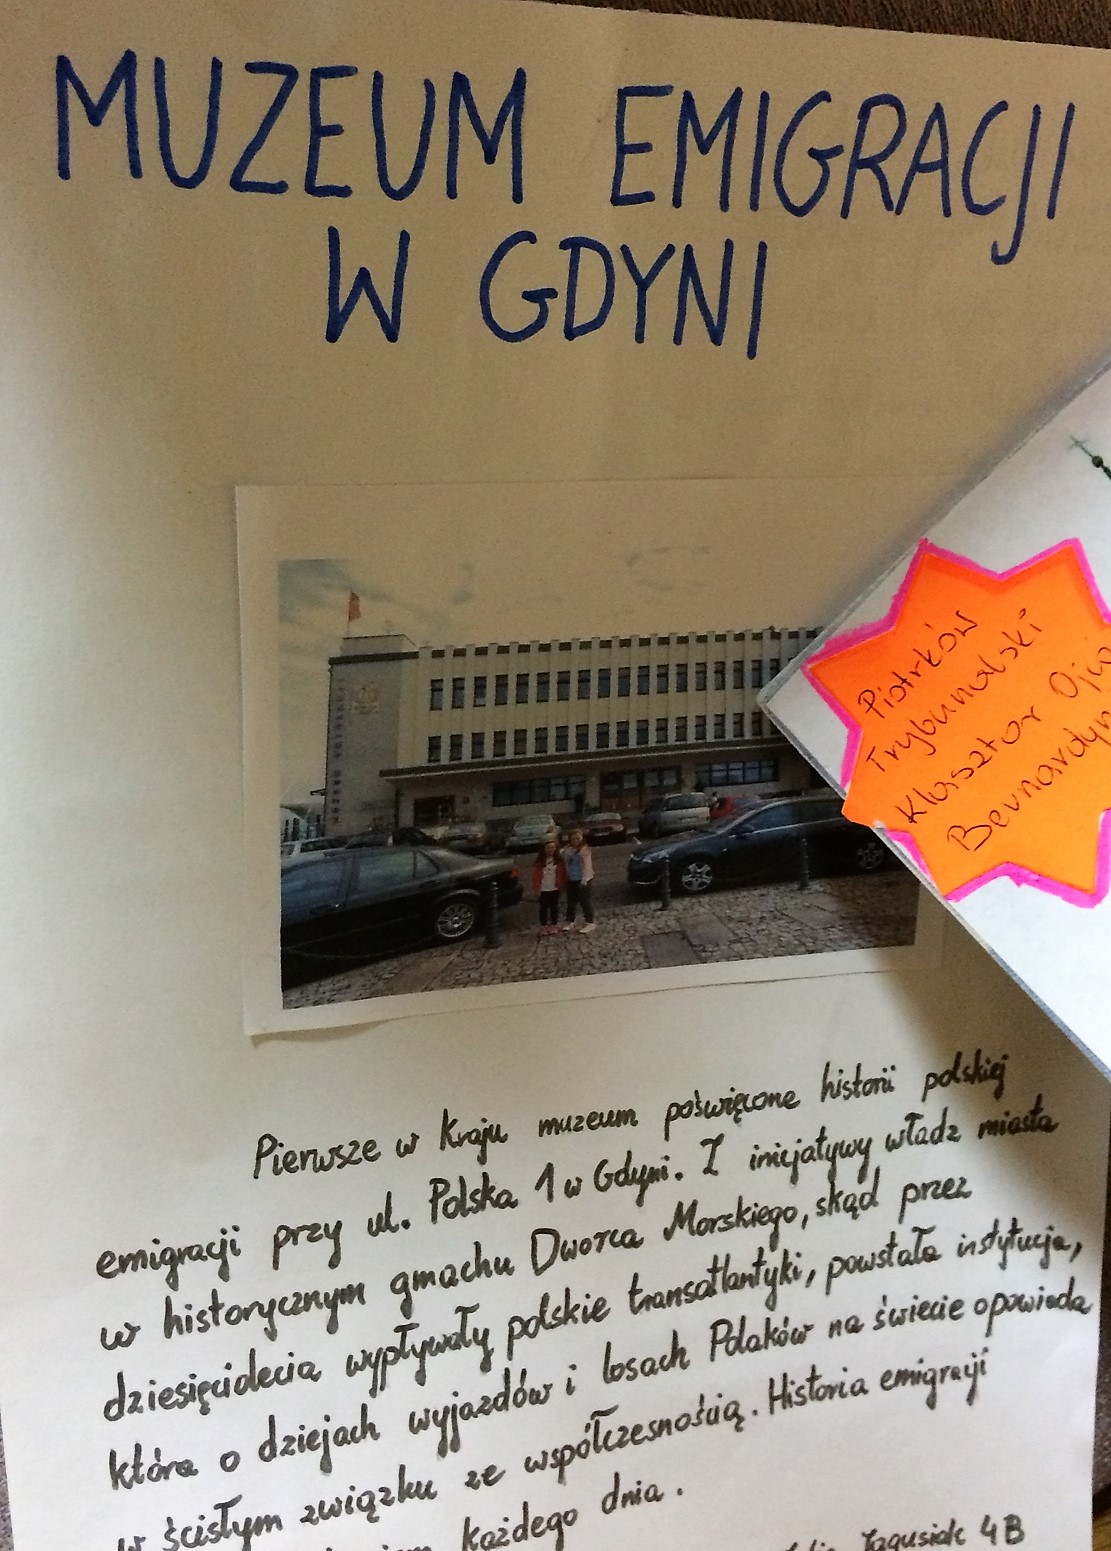 MUZEUM EMIGRACJI
W GDYNI
Piotrków
Trybunalski
Klasztor Ojc
Bernardyn
Pierwsze w kraju muzeum poświęcone historii polskiej
emigracji przy ul. Polska 1 w Gdyni. Z inicjatywy władz miasta
w historycznym gmachu Dworca Morskiego, skąd przez
dziesięciolecia wypływały polskie transatlantyki, powstała instytucja,
która o dziejach wyjazdów i losach Polaków na świecie opowiada
w ścisłym związku ze współczesnością. Historia emigracji
każdego dnia.
Jagusiak 4B